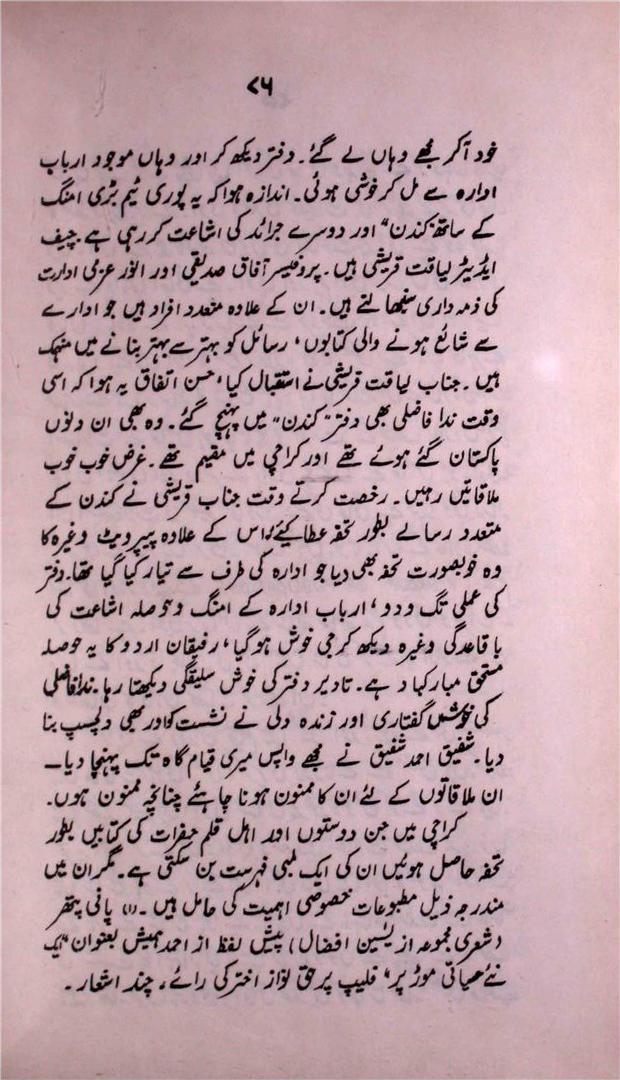 ۷۶
خود آکر مجھے وہاں لے گئے۔ دفتر دیکھ کر اور وہاں موجود ارباب
ادارہ سے مل کر خوشی ہوئی۔ اندازہ ہوا کہ یہ پوری ٹیم بڑی امنگ
کے ساتھ "کندن" اور دوسرے جرائد کی اشاعت کر رہی ہے۔ چیف
ایڈیٹر لیاقت قریشی ہیں۔ پروفیسر آفاق صدیقی اور انور عزمی ادارت
کی ذمہ داری سنبھالتے ہیں۔ ان کے علاوہ متعدد افراد ہیں جو ادارے
سے شائع ہونے والی کتابوں، رسائل کو بہتر سے بہتر بنانے میں منہمک
ہیں۔ جناب لیاقت قریشی نے استقبال کیا، حسن اتفاق یہ ہوا کہ اسی
وقت ندا فاضلی بھی دفتر "کندن" میں پہنچ گئے۔ وہ بھی ان دنوں
پاکستان گئے ہوئے تھے اور کراچی میں مقیم تھے۔ غرض خوب خوب
ملاقاتیں رہیں۔ رخصت کرتے وقت جناب قریشی نے کندن کے
متعدد رسالے بطور تحفہ عطا کیئے، اس کے علاوہ پیپر ویٹ وغیرہ کا
وہ خوبصورت تحفہ بھی دیا جو ادارہ کی طرف سے تیار کیا گیا تھا۔ دفتر
کی عملی تگ و دو، ارباب ادارہ کے امنگ و حوصلہ اشاعت کی
باقاعدگی وغیرہ دیکھ کر جی خوش ہو گیا، رفیقان اردو کا یہ حوصلہ
مستحق مبارکباد ہے۔ تادیر دفتر کی خوش سلیقگی دیکھتا رہا۔ ندا فاضلی
کی خوش گفتاری اور زندہ دلی نے نشست کو اور بھی دلچسپ بنا
دیا۔ شفیق احمد شفیق نے مجھے واپس میری قیام گاہ تک پہنچا دیا۔
ان ملاقاتوں کے لئے ان کا ممنون ہونا چاہئے چنانچہ ممنون ہوں۔
کراچی میں جن دوستوں اور اہل قلم حضرات کی کتابیں بطور
تحفہ حاصل ہوئیں ان کی ایک لمبی فہرست بن سکتی ہے۔ مگر ان میں
مندرجہ ذیل مطبوعات خصوصی اہمیت کی حامل ہیں۔ (۱) پانی پتھر
(شعری مجموعہ از یٰسین افضال) پیش لفظ از احمد ہمیش بعنوان "ایک
نئے حیاتی موڑ پر" فلیپ پر حق نواز اختر کی رائے، چند اشعار۔